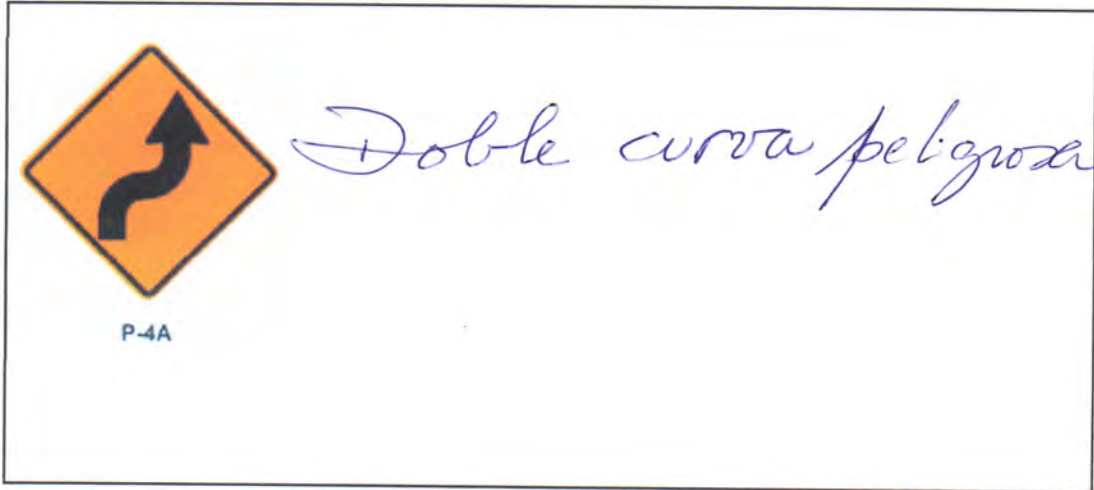 Doble curva peligrosa
P-4A